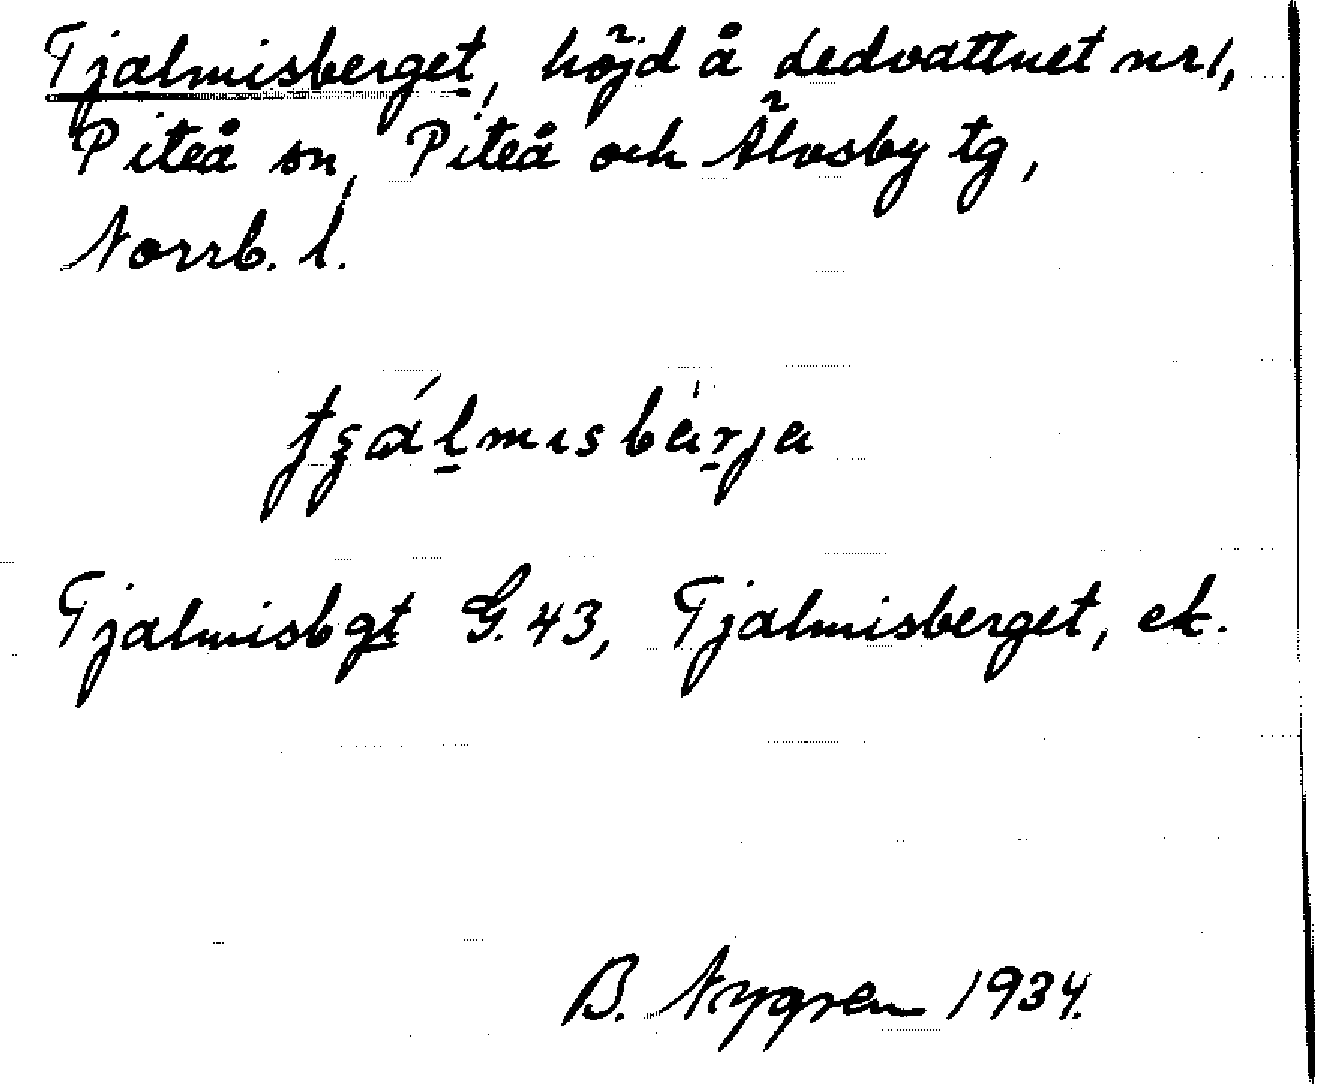 Tjalmisberget, höjd å Ledvattnet nr 1,
Piteå sn, Piteå och Älvsby tg,
Norrb. l.
tʒálmɪsbàrja
Tjalmisbgt G. 43, Tjalmisberget, ek.
B. Nygren 1934.